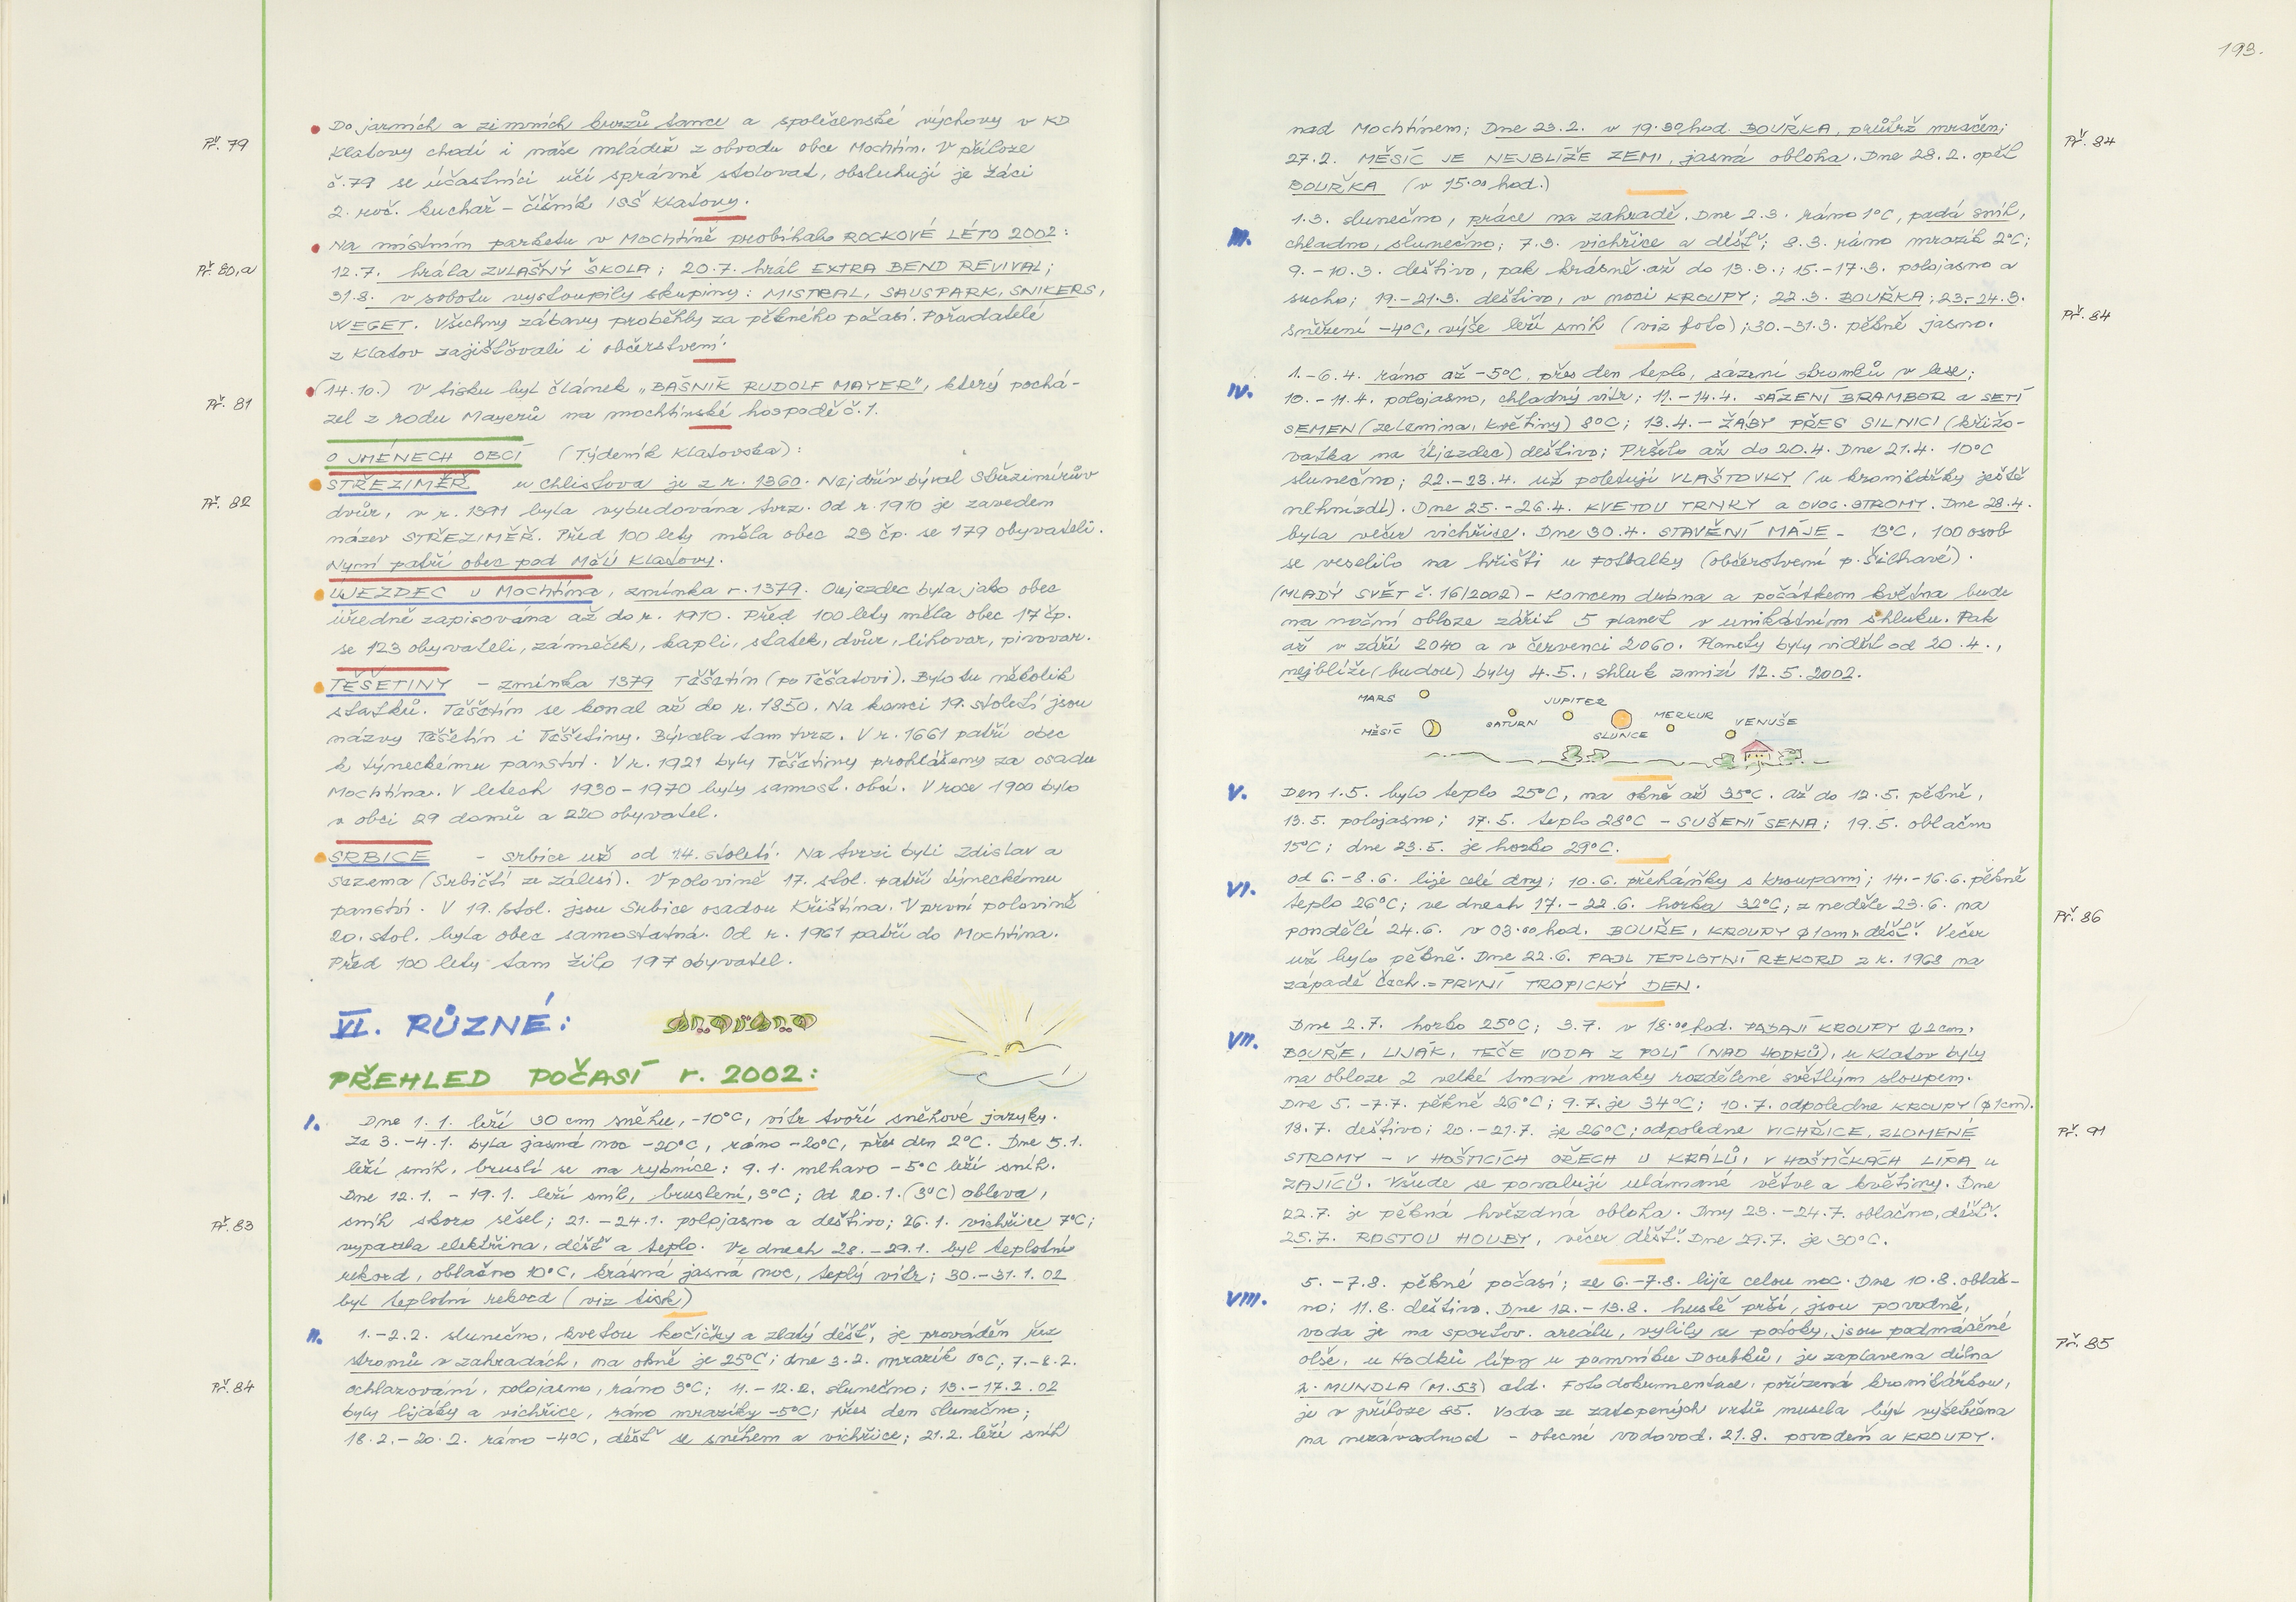 Př. 79
Do jarních a zimních kurzů tance a společenské výchovy v KD
Klatovy chodí i naše mládež z obvodu obce Mochtín. V příloze
č. 79 se účastníci učí správně stolovat, obsluhují je žáci
2. roč. kuchař – číšník ISŠ Klatovy.
Př. 80, a
Na místním parketu v Mochtíně probíhalo ROCKOVÉ LÉTO 2002:
12.7. hrála ZVLAŠNÝ ŠKOLA; 20.7. hrál EXTRA BEND REVIVAL;
31.8. v sobotu vystoupily skupiny: MISTRAL, SAUSPARK, SNIKERS,
WEGET. Všechny zábavy proběhly za pěkného počasí. Pořadatelé
z Klatov zajišťovali i občerstvení.
Př. 81
(14.10.) V tisku byl článek „BÁSNÍK RUDOLF MAYER", který pochá-
zel z rodu Mayerů na mochtínské hospodě č. 1.
O JMÉNECH OBCÍ (Týdeník Klatovska):
Př. 82
STŘEZIMĚŘ u Chlistova je z r. 1360. Nejdřív býval Střezimírův
dvůr, v r. 1391 byla vybudována tvrz. Od r. 1910 je zaveden
název STŘEZIMĚŘ. Před 100 lety měla obec 23 čp. se 179 obyvateli.
Nyní patří obec pod MěÚ Klatovy.
ÚJEZDEC u Mochtína, zmínka r. 1379. Oujezdec byla jako obec
úředně zapisována až do r. 1910. Před 100 lety měla obec 17 čp.
se 123 obyvateli, zámeček, kapli, statek, dvůr, lihovar, pivovar.
TĚŠETINY – zmínka 1379 Těšetín (po Těšatovi). Bylo tu několik
statků. Těšetín se konal až do r. 1850. Na konci 19. století jsou
názvy Těšetín i Těšetiny. Bývala tam tvrz. V r. 1661 patří obec
k týneckému panství. V r. 1921 byly Těšetiny prohlášeny za osadu
Mochtína. V letech 1930–1970 byly samost. obcí. V roce 1900 bylo
v obci 29 domů a 220 obyvatel.
SRBICE – Srbice už od 14. století. Na tvrzi byli Zdislav a
Sezema (Srbičtí ze Zálesí). V polovině 17. stol. patří týneckému
panství. V 19. stol. jsou Srbice osadou Křištína. V první polovině
20. stol. byla obec samostatná. Od r. 1961 patří do Mochtína.
Před 100 lety tam žilo 197 obyvatel.
VI. RŮZNÉ:
PŘEHLED POČASÍ r. 2002:
I. Dne 1.1. leží 30 cm sněhu, -10°C, vítr tvoří sněhové jazyky.
Ze 3.–4.1. byla jasná noc -20°C, ráno -20°C, přes den 2°C. Dne 5.1.
leží sníh, bruslí se na rybníce; 9.1. mlhavo -5°C leží sníh.
Dne 12.1. – 19.1. leží sníh, bruslení, 3°C; Od 20.1. (3°C) obleva,
Př. 83
sníh skoro sešel; 21.–24.1. polojasno a deštivo; 26.1. vichřice 7°C;
vypadla elektřina, déšť a teplo. Ve dnech 28.–29.1. byl teplotní
rekord, oblačno 10°C, krásná jasná noc, teplý vítr; 30.–31.1.02
byl teplotní rekord (viz tisk)
II. 1.–2.2. slunečno, kvetou kočičky a zlatý déšť, je prováděn řez
stromů v zahradách, na okně je 25°C; dne 3.2. mrazík 0°C; 7.–8.2.
Př. 84
ochlazování, polojasno, ráno 3°C; 11.–12.2. slunečno; 13.–17.2.02
byly lijáky a vichřice, ráno mrazíky -5°C; přes den slunečno;
18.2.–20.2. ráno -4°C, déšť se sněhem a vichřice; 21.2. leží sníh
193.
nad Mochtínem; Dne 23.2. v 19.30 hod. BOUŘKA, průtrž mračen;
Př. 84
27.2. MĚSÍC JE NEJBLÍŽE ZEMI, jasná obloha. Dne 28.2. opět
BOUŘKA (v 15.00 hod.)
1.3. slunečno, práce na zahradě. Dne 2.3. ráno 1°C, padá sníh,
III. chladno, slunečno; 7.3. vichřice a déšť; 8.3. ráno mrazík 2°C;
9.–10.3. deštivo, pak krásně až do 13.3.; 15.–17.3. polojasno a
sucho; 19.–21.3. deštivo, v noci KROUPY; 22.3. BOUŘKA; 23.–24.3.
Př. 84
sněžení -4°C, výše leží sníh (viz foto); 30.–31.3. pěkně jasno.
1.–6.4. ráno až -5°C, přes den teplo, sázení stromků v lese;
IV. 10.–11.4. polojasno, chladný vítr; 11.–14.4. SÁZENÍ BRAMBOR a SETÍ
SEMEN (zelenina, květiny) 8°C; 13.4. – ŽÁBY PŘES SILNICI (křižo-
vatka na Újezdec) deštivo; Pršelo až do 20.4. Dne 21.4. 10°C
slunečno; 22.–23.4. už poletují VLAŠTOVKY (u kronikářky ještě
nehnízdí). Dne 25.–26.4. KVETOU TRNKY a OVOC. STROMY. Dne 28.4.
byla večer vichřice. Dne 30.4. STAVĚNÍ MÁJE – 13°C, 100 osob
se veselilo na hřišti u Fotbalky (občerstvení p. Šilhavé).
(MLADÝ SVĚT č. 16/2002) – Koncem dubna a počátkem května bude
na noční obloze zářit 5 planet v unikátním shluku. Pak
až v září 2040 a v červenci 2060. Planety byly vidět od 20.4.,
nejblíže (budou) byly 4.5., shluk zmizí 12.5.2002.
MARS
JUPITER
MĚSÍC
SATURN
SLUNCE
MERKUR
VENUŠE
V. Den 1.5. bylo teplo 25°C, na okně až 35°C. Až do 12.5. pěkně,
13.5. polojasno; 17.5. teplo 28°C – SUŠENÍ SENA; 19.5. oblačno
15°C; dne 23.5. je horko 29°C.
VI. Od 6.–8.6. lije celé dny; 10.6. přeháňky s kroupami; 14.–16.6. pěkně
teplo 26°C; ve dnech 17.–22.6. horka 32°C; z neděle 23.6. na
Př. 86
pondělí 24.6. v 03.00 hod. BOUŘE, KROUPY ϕ 1cm, déšť. Večer
už bylo pěkně. Dne 22.6. PADL TEPLOTNÍ REKORD z r. 1968 na
západě Čech. = PRVNÍ TROPICKÝ DEN.
Dne 2.7. horko 25°C; 3.7. v 18.00 hod. PADAJÍ KROUPY ϕ 2cm,
VII. BOUŘE, LIJÁK, TEČE VODA Z POLÍ (NAD HODKŮ), u Klatov byly
na obloze 2 velké tmavé mraky rozdělené světlým sloupem.
Dne 5.–7.7. pěkně 26°C; 9.7. je 34°C; 10.7. odpoledne KROUPY (ϕ 1cm).
Př. 91
18.7. deštivo; 20.–21.7. je 26°C; odpoledne VICHŘICE, ZLOMENÉ
STROMY – V HOŠTICÍCH OŘECH U KRÁLŮ, V HOŠTIČKÁCH LÍPA u
ZAJÍCŮ. Všude se povalují ulámané větve a květiny. Dne
22.7. je pěkná hvězdná obloha. Dny 23.–24.7. oblačno, déšť.
25.7. ROSTOU HOUBY, večer déšť. Dne 29.7. je 30°C.
5.–7.8. pěkné počasí; ze 6.–7.8. lije celou noc. Dne 10.8. oblač-
VIII. no; 11.8. deštivo. Dne 12.–13.8. hustě prší, jsou povodně,
voda je na sportov. areálu, vylily se potoky, jsou podmáčené
Př. 85
olše, u Hodků lípy u pomníku Doubků, je zaplavena dílna
p. MUNDLA (M. 53) atd. Fotodokumentace, pořízená kronikářkou,
je v příloze 85. Voda ze zatopených vrtů musela být vyšetřena
na nezávadnost – obecní vodovod. 21.8. povodeň a KROUPY.